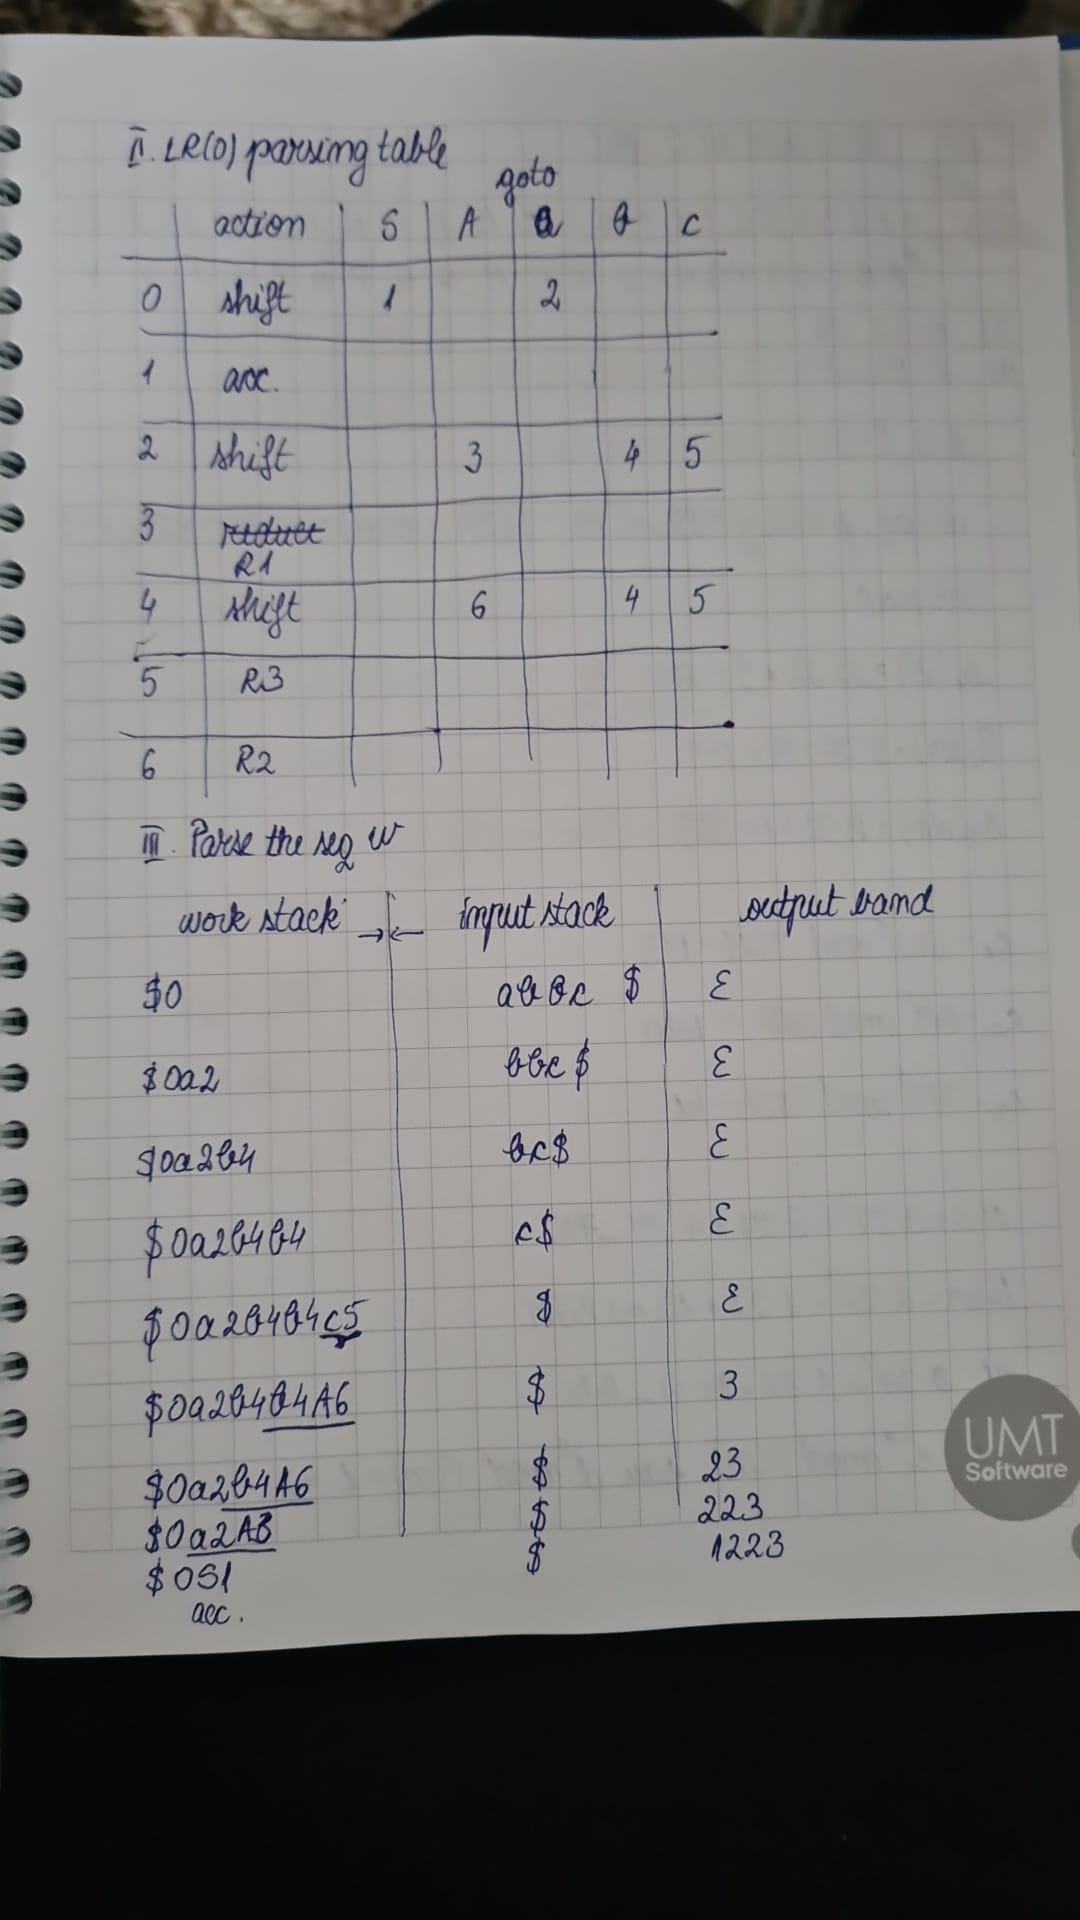 II. LR(0) parsing table
goto
action S A a b c
0 shift 1 2
1 acc.
2 shift 3 4 5
3 reduce
R1
4 shift 6 4 5
5 R3
6 R2
III. Parse the seq w
work stack →|← input stack output band
$0 abbc $ ε
$0a2 bbc$ ε
$0a2b4 bc$ ε
$0a2b4b4 c$ ε
$0a2b4b4c5 $ ε
$0a2b4b4A6 $ 3
$0a2b4A6 $ 23
$0a2A3 $ 223
$0S1 $ 1223
acc.
UMT
Software